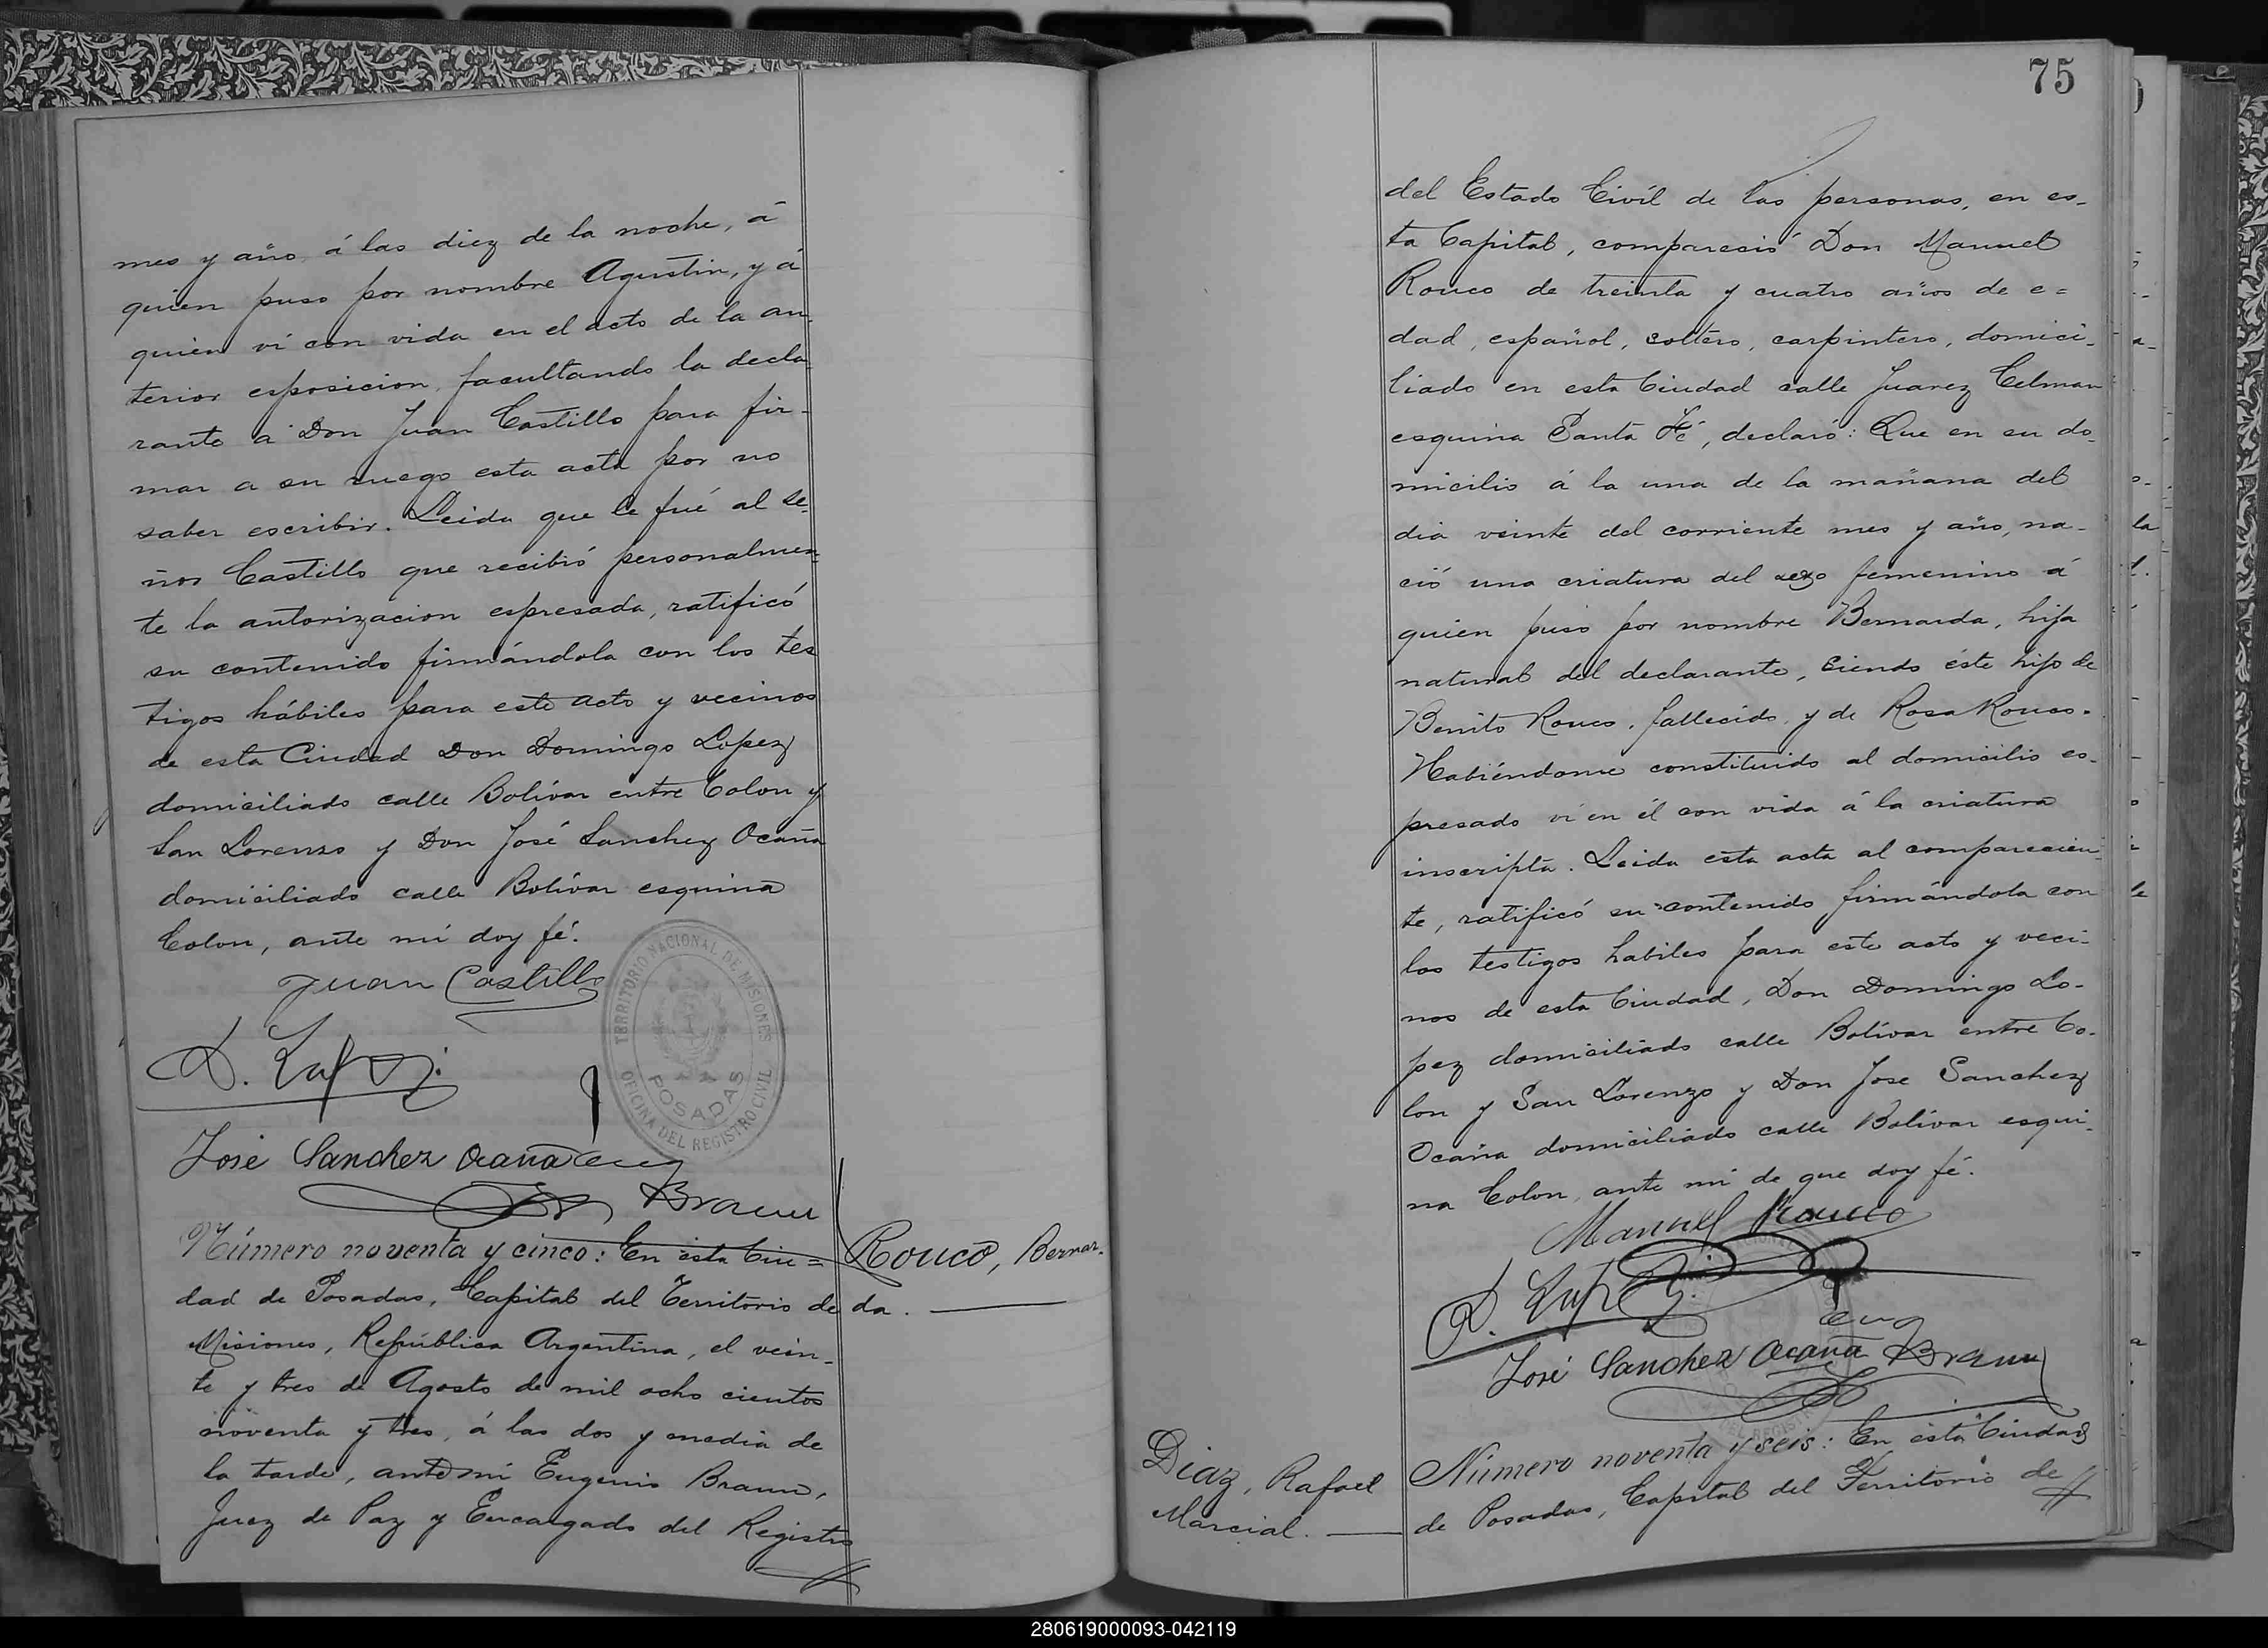 mes y año á las diez de la noche, á
quien puso por nombre Agustin, y á
quien ví con vida en el acto de la an-
terior esposicion, facultando la decla
rante a Don Juan Castillo para fir-
mar a su ruego esta acta por no
saber escribir. Leida que le fué al se-
ñor Castillo que recibió personalmen-
te la autorizacion espresada, ratificó
su contenido firmándola con los tes
tigos hábiles para este acto y vecinos
de esta Ciudad Don Domingo Lopez
domiciliado calle Bolívar entre Colon y
San Lorenzo y Don José Sanchez Ocaña
domiciliado calle Bolívar esquina
Colon, ante mí doy fé.
Juan Castillo
D. Lopez
TERRITORIO NACIONAL DE MISIONES
POSADAS
OFICINA DEL REGISTRO CIVIL
José Sanchez Ocaña Eug
Braun
Número noventa y cinco: En esta Ciu=
dad de Posadas, Capital del Territorio de
Misiones, República Argentina, el vein-
te y tres de Agosto de mil ocho cientos
noventa y tres, á las dos y media de
la tarde, ante mí Eugenio Braun,
Juez de Paz y Encargado del Registro
Rouco, Bernar-
da.
75
del Estado Civíl de las personas, en es-
ta Capital, comparesió Don Manuel
Rouco de treinta y cuatro años de e=
dad, español, soltero, carpintero, domici-
liado en esta Ciudad calle Juarez Celman
esquina Santa Fé, declaró: Que en su do-
micilio á la una de la mañana del
dia veinte del corriente mes y año, na-
ció una criatura del sexo femenino á
quien puso por nombre Bernarda, hija
natural del declarante, siendo éste hijo de
Benito Rouco, fallecido, y de Rosa Rouco.
Habiéndome constituido al domicilio es-
presado ví en él con vida á la criatura
inscripta. Leida esta acta al comparecien-
te, ratificó su contenido firmándola con
los testigos habiles para este acto y veci-
nos de esta Ciudad, Don Domingo Lo-
pez domiciliado calle Bolívar entre Co-
lon y San Lorenzo y Don Jose Sanchez
Ocaña domiciliado calle Bolívar esqui-
na Colon, ante mí de que doy fé.
Manuel Rouco
D. Lopez
Eug
José Sanchez Ocaña Braun
Diaz, Rafael
Marcial.
Número noventa y seis: En esta Ciudad
de Posadas, Capital del Territorio de
280619000093-042119